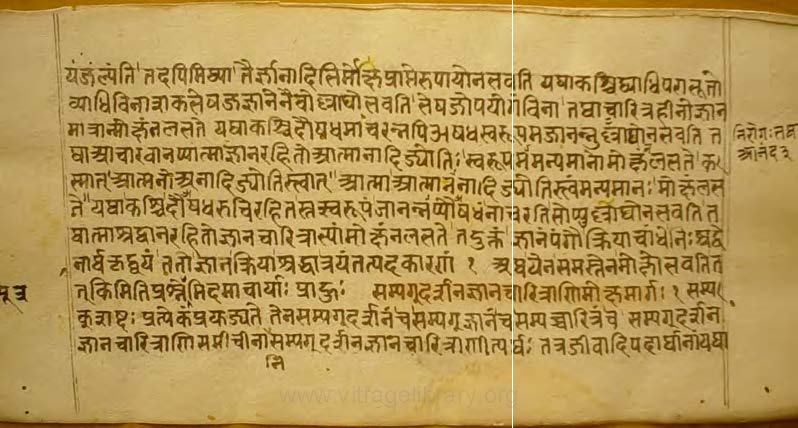 यं कल्पंति तदपि मिथ्या तैर्ज्ञानादिभिर्मोक्षप्राप्तेरुपायो न भवति यथा कश्चिद्व्याधिपराभूतो
व्याधिविनाशकभेषजज्ञानेनैवोल्लाघो भवति भेषजोपयोगं विना तथा चारित्रहीनो ज्ञान
मात्रान्मोक्षं न लभते यथा कश्चिदौषधमाचरन्नपि औषधस्वरूपमजानन्नुल्लाघो न भवति त
था आचारवानप्यात्मज्ञानरहितो आत्मानादिज्योतिः स्वरूपममन्यमानो मोक्षं न लभते क
स्मात् आत्मनो अनादिज्योतिस्त्वात् आत्मा आत्मानमनादिज्योतिस्त्वं मन्यमानः मोक्षं लभ
ते यथा कश्चिदौषधरुचिरहितस्तत्स्वरूपं जानन्नप्यौषधं नाचरति सोप्युल्लाघो न भवति त
थात्मा श्रद्धानरहितो ज्ञानचारित्राभ्यां मोक्षं न लभते तदुक्तं ज्ञानं पंगो क्रिया चांधे निःश्रद्धे
नार्थकृद्द्वयं ततो ज्ञानक्रियाश्रद्धात्रयं तत्पदकारणं १ समस्तेन मोक्षो भवति त
त् किमिति प्रश्ने इदमाचार्याः प्राहुः सम्यग्दर्शनज्ञानचारित्राणि मोक्षमार्गः १ सम्यक्
शब्दः प्रत्येकं प्रयुज्यते तेन सम्यग्दर्शनं च सम्यग्ज्ञानं च सम्यक्चारित्रं च सम्यग्दर्शन
ज्ञानचारित्राणि समीचीनानि सम्यग्दर्शनज्ञानचारित्राणीत्यर्थः तत्र जीवादिपदार्थानां यथा
नि
निरोगः
सूत्र
www.vitragelibrary.org